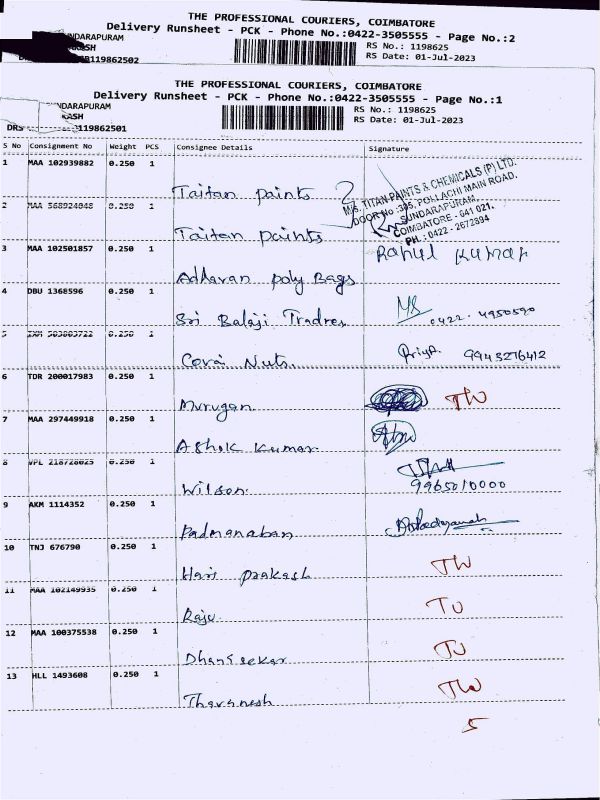 THE PROFESSIONAL COURIERS, COIMBATORE
Delivery Runsheet - PCK - Phone No.:0422-3505555 - Page No.:2
NDARAPURAM
RS No.: 1198625
KASH
RS Date: 01-Jul-2023
119862502
THE PROFESSIONAL COURIERS, COIMBATORE
Delivery Runsheet - PCK - Phone No.:0422-3505555 - Page No.:1
NDARAPURAM
RS No.: 1198625
KASH
RS Date: 01-Jul-2023
DRS 119862501
S No Consignment No Weight PCS Consignee Details Signature
1 MAA 102939882 0.250 1
Taitan paints
M/S. TITAN PAINTS & CHEMICALS (P) LTD.
DOOR No :395, POLLACHI MAIN ROAD,
SUNDARAPURAM,
COIMBATORE - 641 021.
PH.: 0422 - 2672894
2 MAA 568924048 0.250 1
Taitan paints
3 MAA 102501857 0.250 1
Adhavan poly Bags Rahul Kumar
4 DBU 1368596 0.250 1
Sri Balaji Tradres 0422-4950590
5 0.250 1
Covai Nuts. Priya 9943276412
6 TDR 200017983 0.250 1
Murugan TW
7 MAA 297449918 0.250 1
Ashok Kumar
8 VPL 218728025 0.250 1
Wilson 9965010000
9 AKM 1114352 0.250 1
Padmanaban
10 TNJ 676790 0.250 1
Hari prakash TW
11 MAA 102149935 0.250 1
Raju TU
12 MAA 100375538 0.250 1
Dhansekar TU
13 HLL 1493608 0.250 1
Tharanesh TW
5